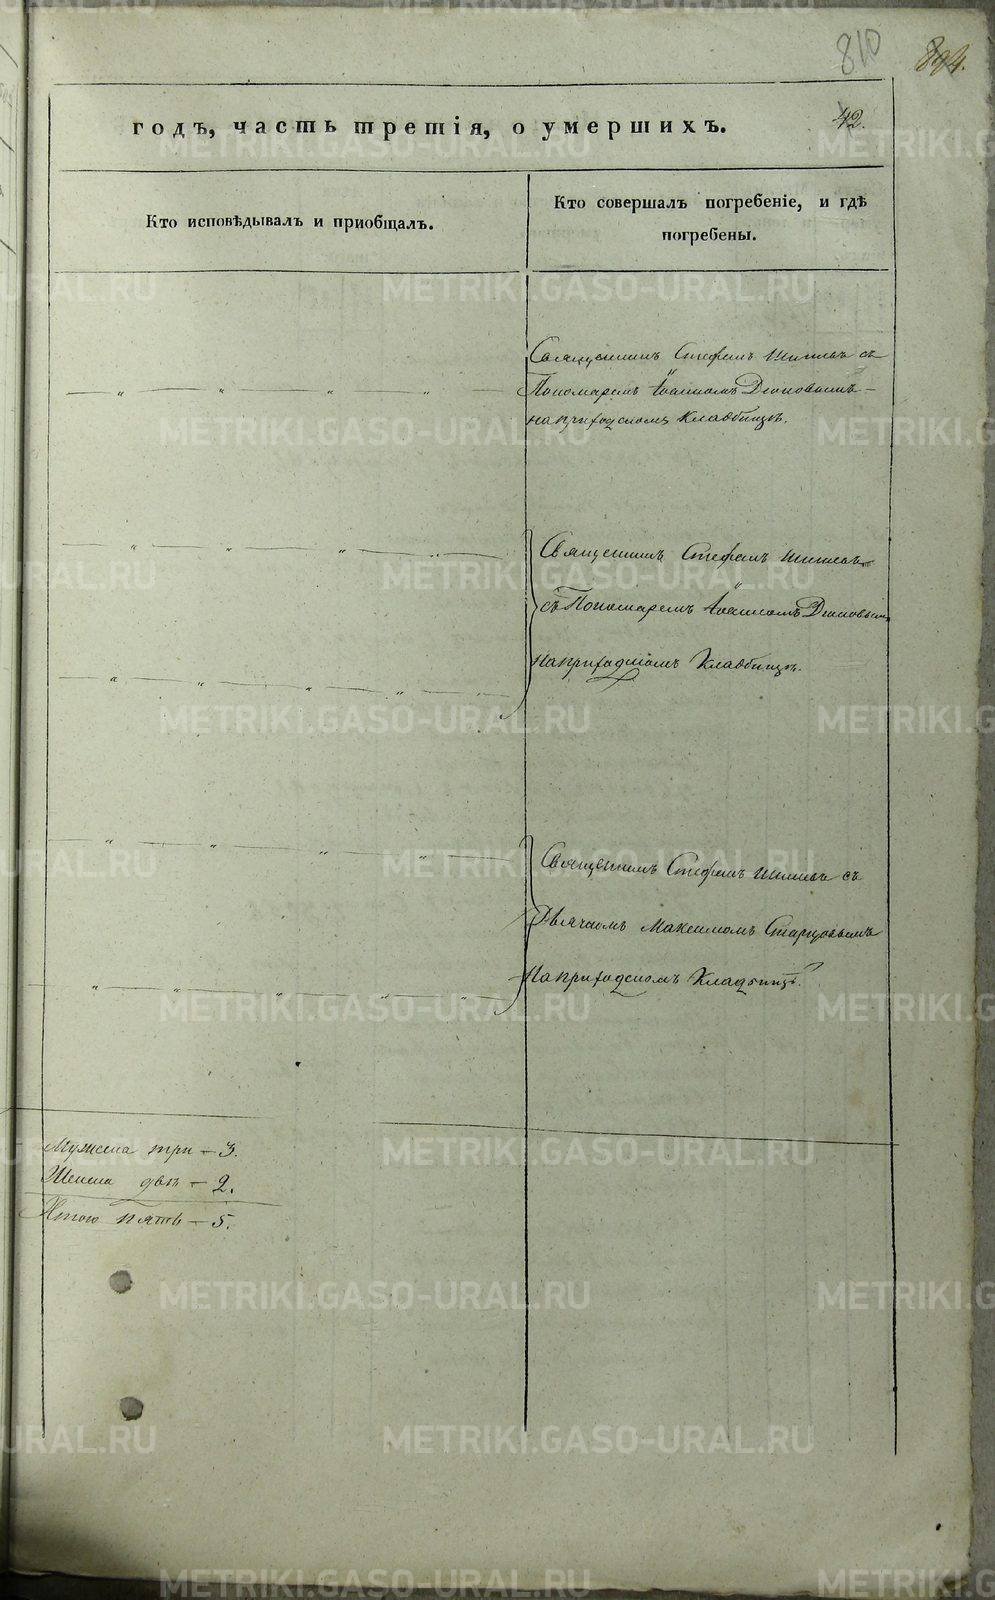 810
894.
42.
годъ, часть третія, о умершихъ.
Кто исповѣдывалъ и приобщалъ.
Кто совершалъ погребеніе, и гдѣ
погребены.
Священникъ Стефанъ съ
Пономаремъ Іоанномъ
на приходскомъ кладбищѣ.
Священникъ Стефанъ
съ Пономаремъ Іоанномъ
на приходскомъ кладбищѣ.
Священникъ Стефанъ съ
Дьячкомъ Максимомъ Старцовымъ
на приходскомъ кладбищѣ.
Мужеска три — 3.
Женска двѣ — 2.
Итого пять — 5.
METRIKI.GASO-URAL.RU